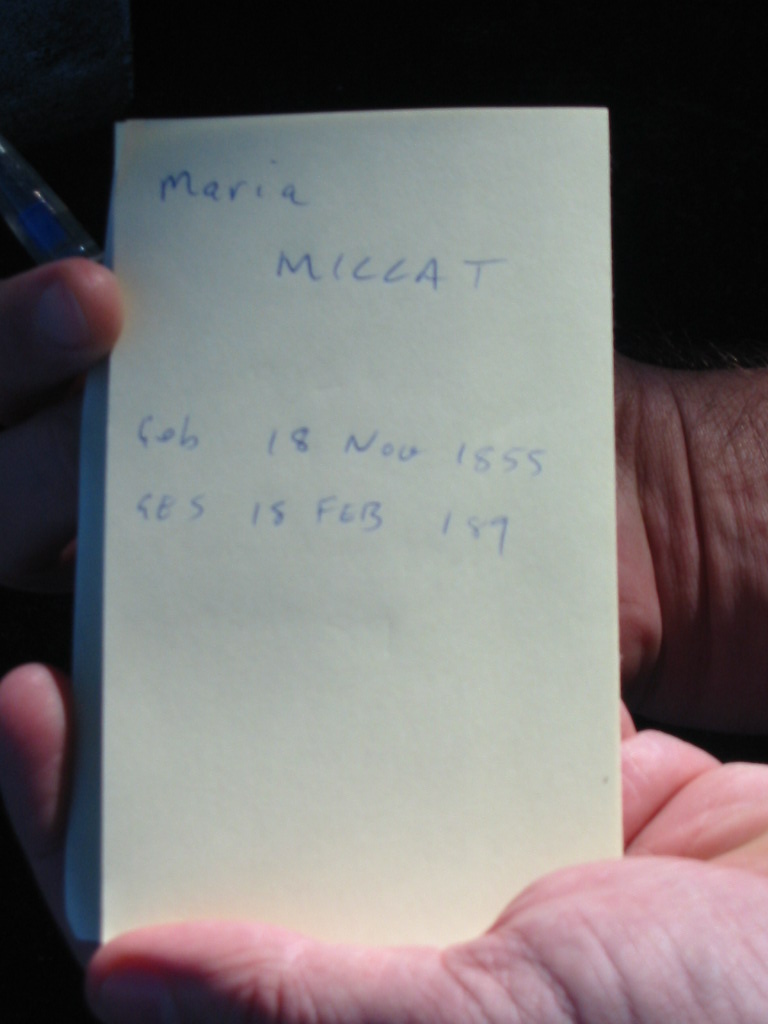 Maria
MILLAT
Geb 18 Nov 1855
GES 18 FEB 189